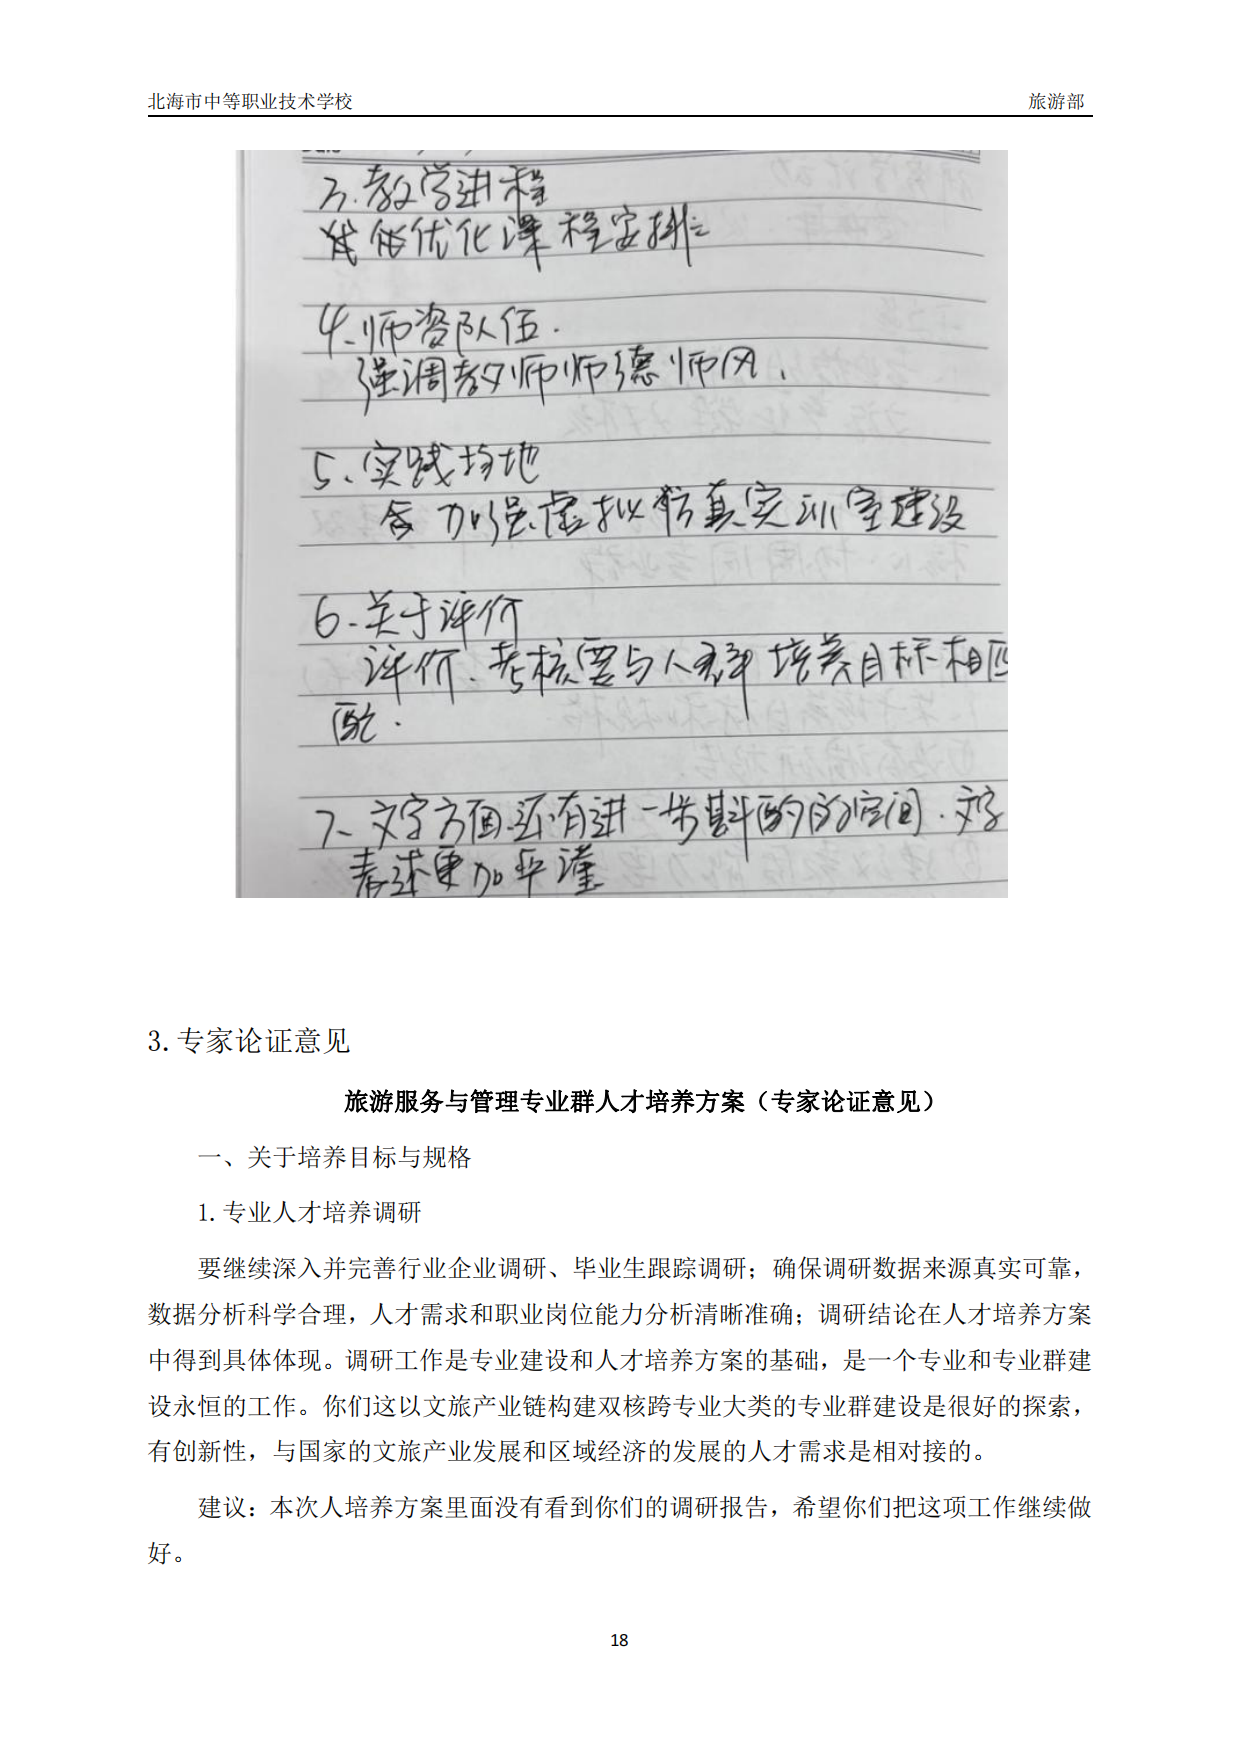 北海市中等职业技术学校 旅游部
3.教学进程
优化课程安排
4.师资队伍.
强调教师师德师风.
5、实践场地
加强虚拟仿真实训室建设
6.关于评价
评价、考核要与人才培养目标相匹
配.
7、文字方面还有进一步斟酌的空间.文字
表述更加严谨
3.专家论证意见
旅游服务与管理专业群人才培养方案（专家论证意见）
一、关于培养目标与规格
1.专业人才培养调研
要继续深入并完善行业企业调研、毕业生跟踪调研；确保调研数据来源真实可靠，
数据分析科学合理，人才需求和职业岗位能力分析清晰准确；调研结论在人才培养方案
中得到具体体现。调研工作是专业建设和人才培养方案的基础，是一个专业和专业群建
设永恒的工作。你们这以文旅产业链构建双核跨专业大类的专业群建设是很好的探索，
有创新性，与国家的文旅产业发展和区域经济的发展的人才需求是相对接的。
建议：本次人培养方案里面没有看到你们的调研报告，希望你们把这项工作继续做
好。
18